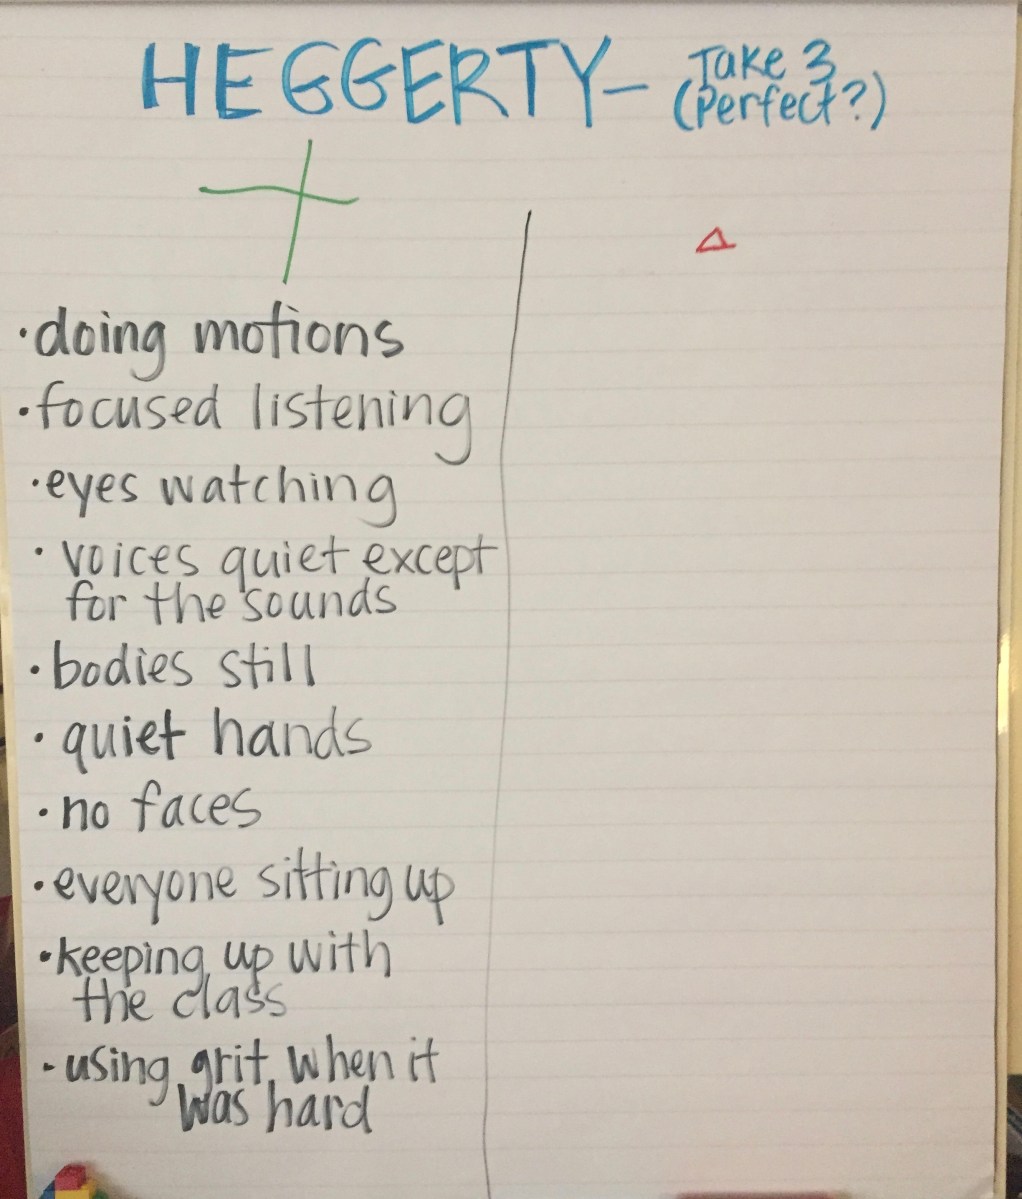 HEGGERTY- Take 3
(Perfect?)
+
Δ
·doing motions
·focused listening
·eyes watching
·voices quiet except
for the sounds
·bodies still
·quiet hands
·no faces
·everyone sitting up
·keeping up with
the class
·using grit when it
was hard